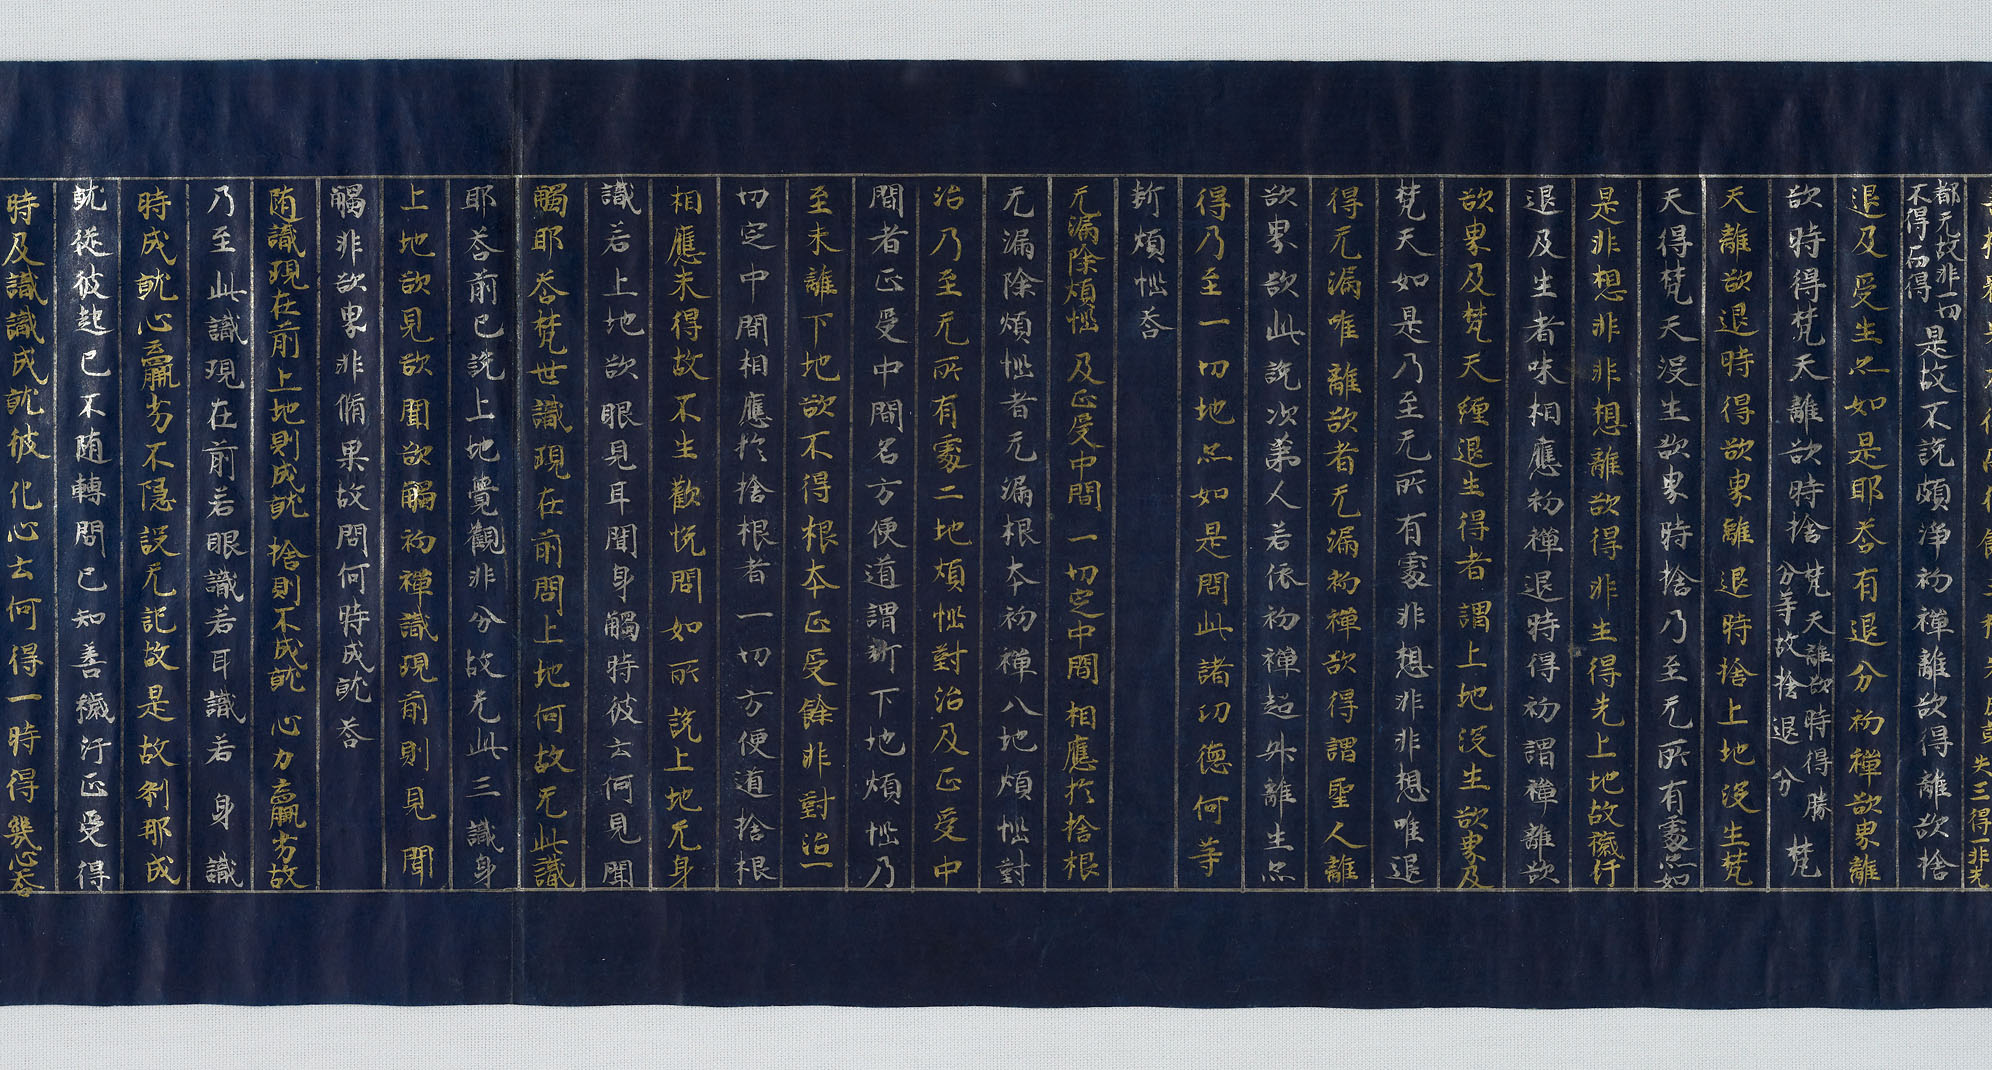 失三得一非先
都无故非一切不得而得是故不說頗淨初禪離欲得離欲捨
退及受生亦如是耶荅有退分初禪欲界離
欲時得梵天離欲時捨梵天離欲時得勝分等故捨退分梵
天離欲退時得欲界離退時捨上地沒生梵
天得梵天沒生欲界時捨乃至无所有處亦如
是非想非非想離欲得非生得先上地故穢汙
退及生者味相應初禪退時得初謂禪離欲
欲界及梵天纏退生得者謂上地沒生欲界及
梵天如是乃至无所有處非想非非想唯退
得无漏唯離欲者无漏初禪欲得謂聖人離
欲界欲此說次第人若依初禪超昇離生亦
得乃至一切地亦如是問此諸功德何等
斷煩惱荅
无漏除煩惱 及正受中間 一切定中間 相應於捨根
无漏除煩惱者无漏根本初禪八地煩惱對
治乃至无所有處二地煩惱對治及正受中
間者正受中間名方便道謂斷下地煩惱乃
至未離下地欲不得根本正受餘非對治一
切定中間相應於捨根者一切方便道捨根
相應未得故不生歡悅問如所說上地无身
識若上地欲眼見耳聞身觸時彼云何見聞
觸耶荅梵世識現在前問上地何故无此識
耶荅前已說上地覺觀非分故无此三識身
上地欲見欲聞欲觸初禪識現前則見聞
觸非欲界非脩果故問何時成就荅
随識現在前 上地則成就 捨則不成就 心力羸劣故
乃至此識現在前若眼識若耳識若身識
時成就心羸劣不隱說无記故是故刹那成
就從彼起已不随轉問已知善穢汙正受得
時及識識成就彼化心云何得一時得幾心荅